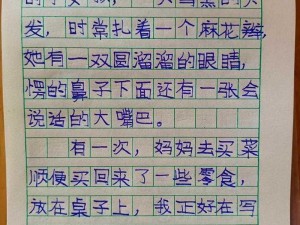 的小女孩，一头乌黑的头
发，时常扎着一个麻花辫，
她有一双圆溜溜的眼睛，
愣的鼻子下面还有一张会
说话的大嘴巴。
有一次，妈妈去买菜
顺便买回来了一些零食，
放在桌子上，我正好在写